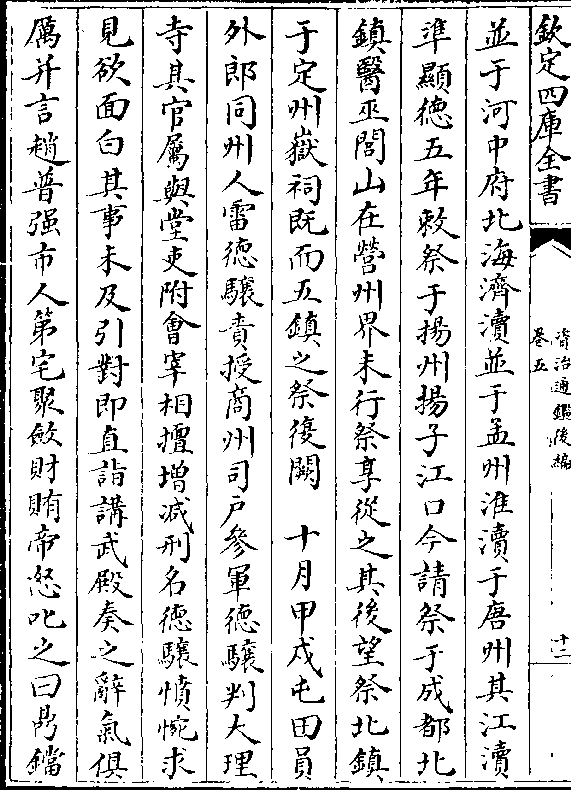 欽定四庫全書
資治通鑑後編
卷五
十二
並于河中府北海濟瀆並于孟州淮瀆于唐州其江瀆
準顯德五年敕祭于揚州揚子江口今請祭于成都北
鎮醫巫閭山在營州界未行祭享從之其後望祭北鎮
于定州嶽祠既而五鎮之祭復闕　十月甲戌屯田員
外郎同州人雷德驤責授商州司戶參軍德驤判大理
寺其官屬與堂吏附會宰相擅增減刑名德驤憤惋求
見欲面白其事未及引對即直詣講武殿奏之辭氣俱
厲并言趙普强市人第宅聚斂財賄帝怒叱之曰鼎鐺